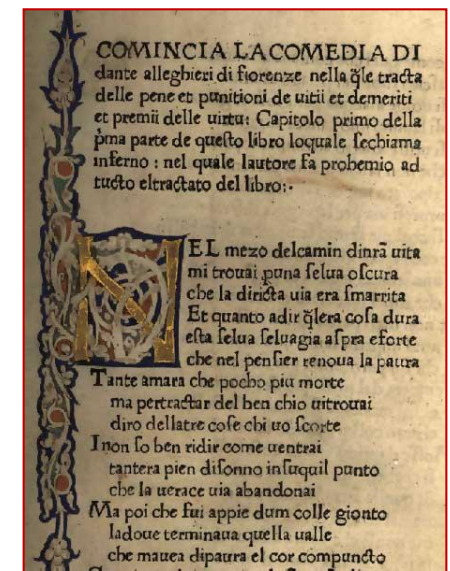 COMINCIA LACOMEDIA DI
dante alleghieri di fiorenze nella q̃le tracta
delle pene et punitioni de uitii et demeriti
et premii delle uirtu: Capitolo primo della
p̃ma parte de queſto libro loquale ſechiama
inferno : nel quale lautore fa prohemio ad
tucto eltractato del libro:·
NEL mezo delcamin dinr̃a uita
mi trouai ꝑuna ſelua oſcura
che la diricta uia era ſmarrita
Et quanto adir q̃lera coſa dura
eſta ſelua ſeluagia aſpra eforte
che nel penſier renoua la paura
Tante amara che pocho piu morte
ma pertractar del ben chio uitrouai
diro dellatre coſe chi uo ſcorte
I non ſo ben ridir come uentrai
tantera pien diſonno inſuquil punto
che la uerace uia abandonai
Ma poi che fui appie dum colle gionto
ladoue terminaua quella ualle
che mauea dipaura el cor compuncto